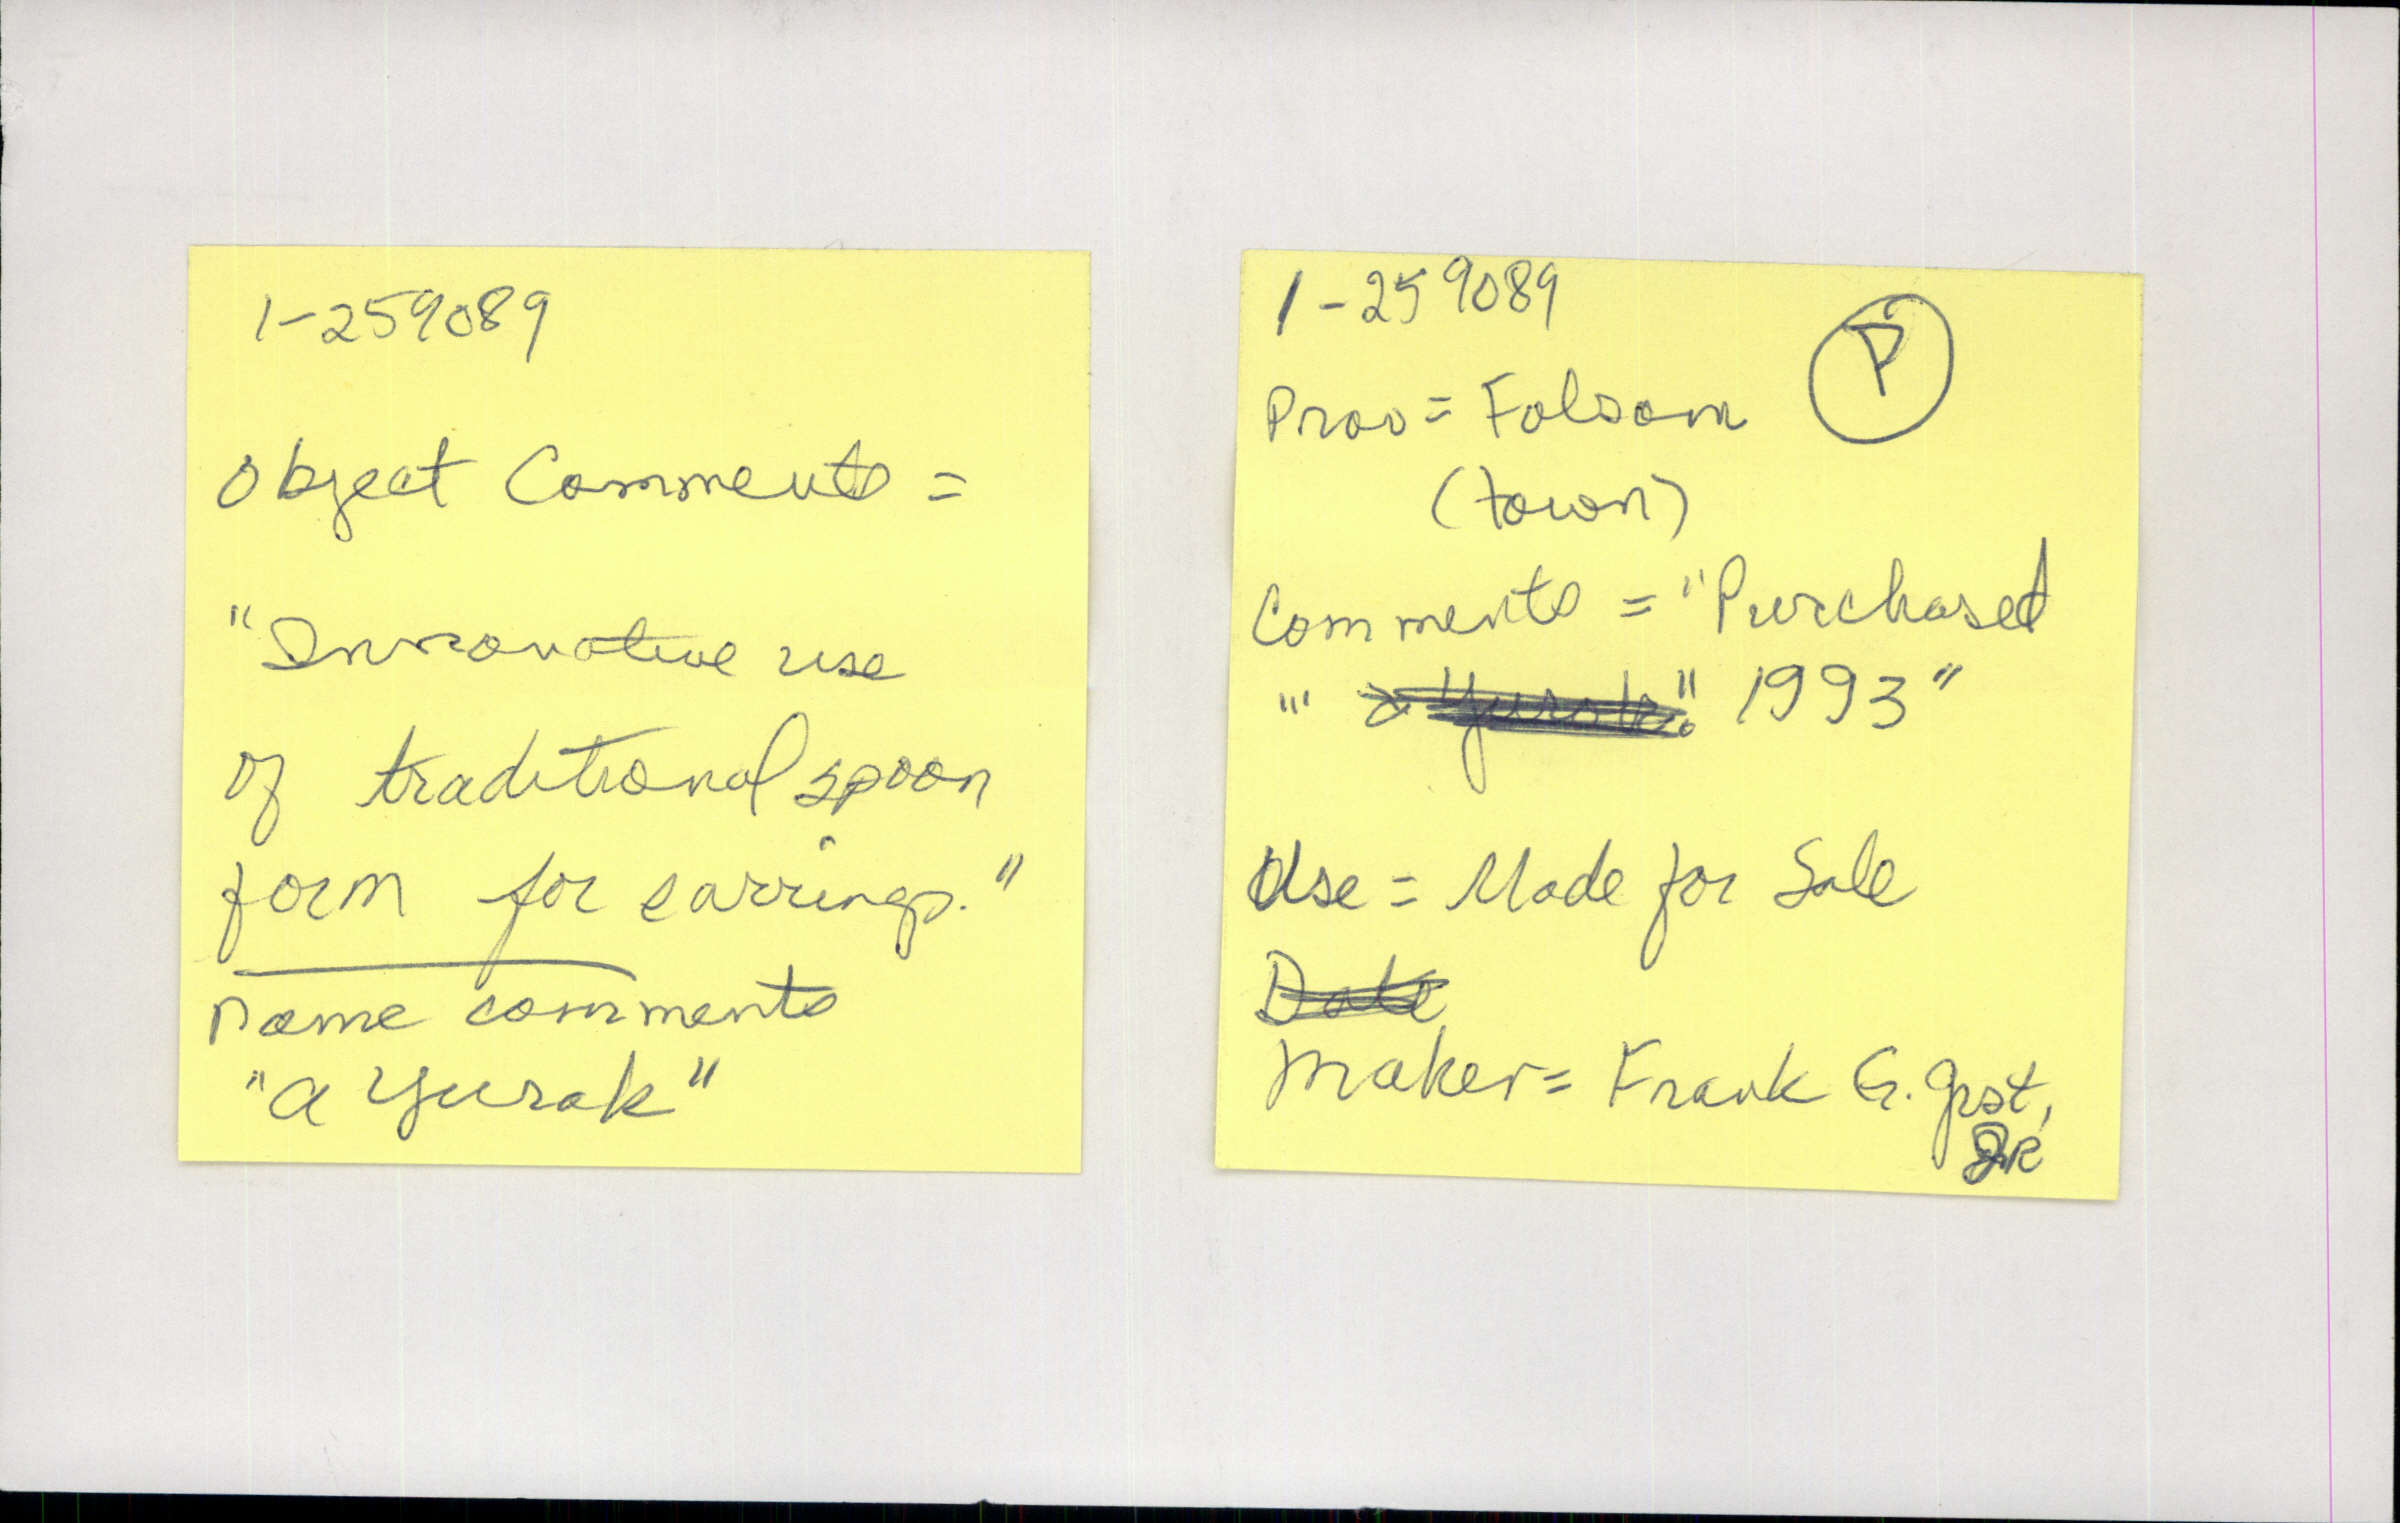 1-259089
Object Comments =
"Innovative use
of traditional spoon
form for earrings."
Name comments
"a Yurok"
1-259089
P
Prov = Folsom
(town)
Comments = "Purchased
"' a Yurok." 1993"
Use = Made for Sale
Date
Maker = Frank G. Gist,
JR